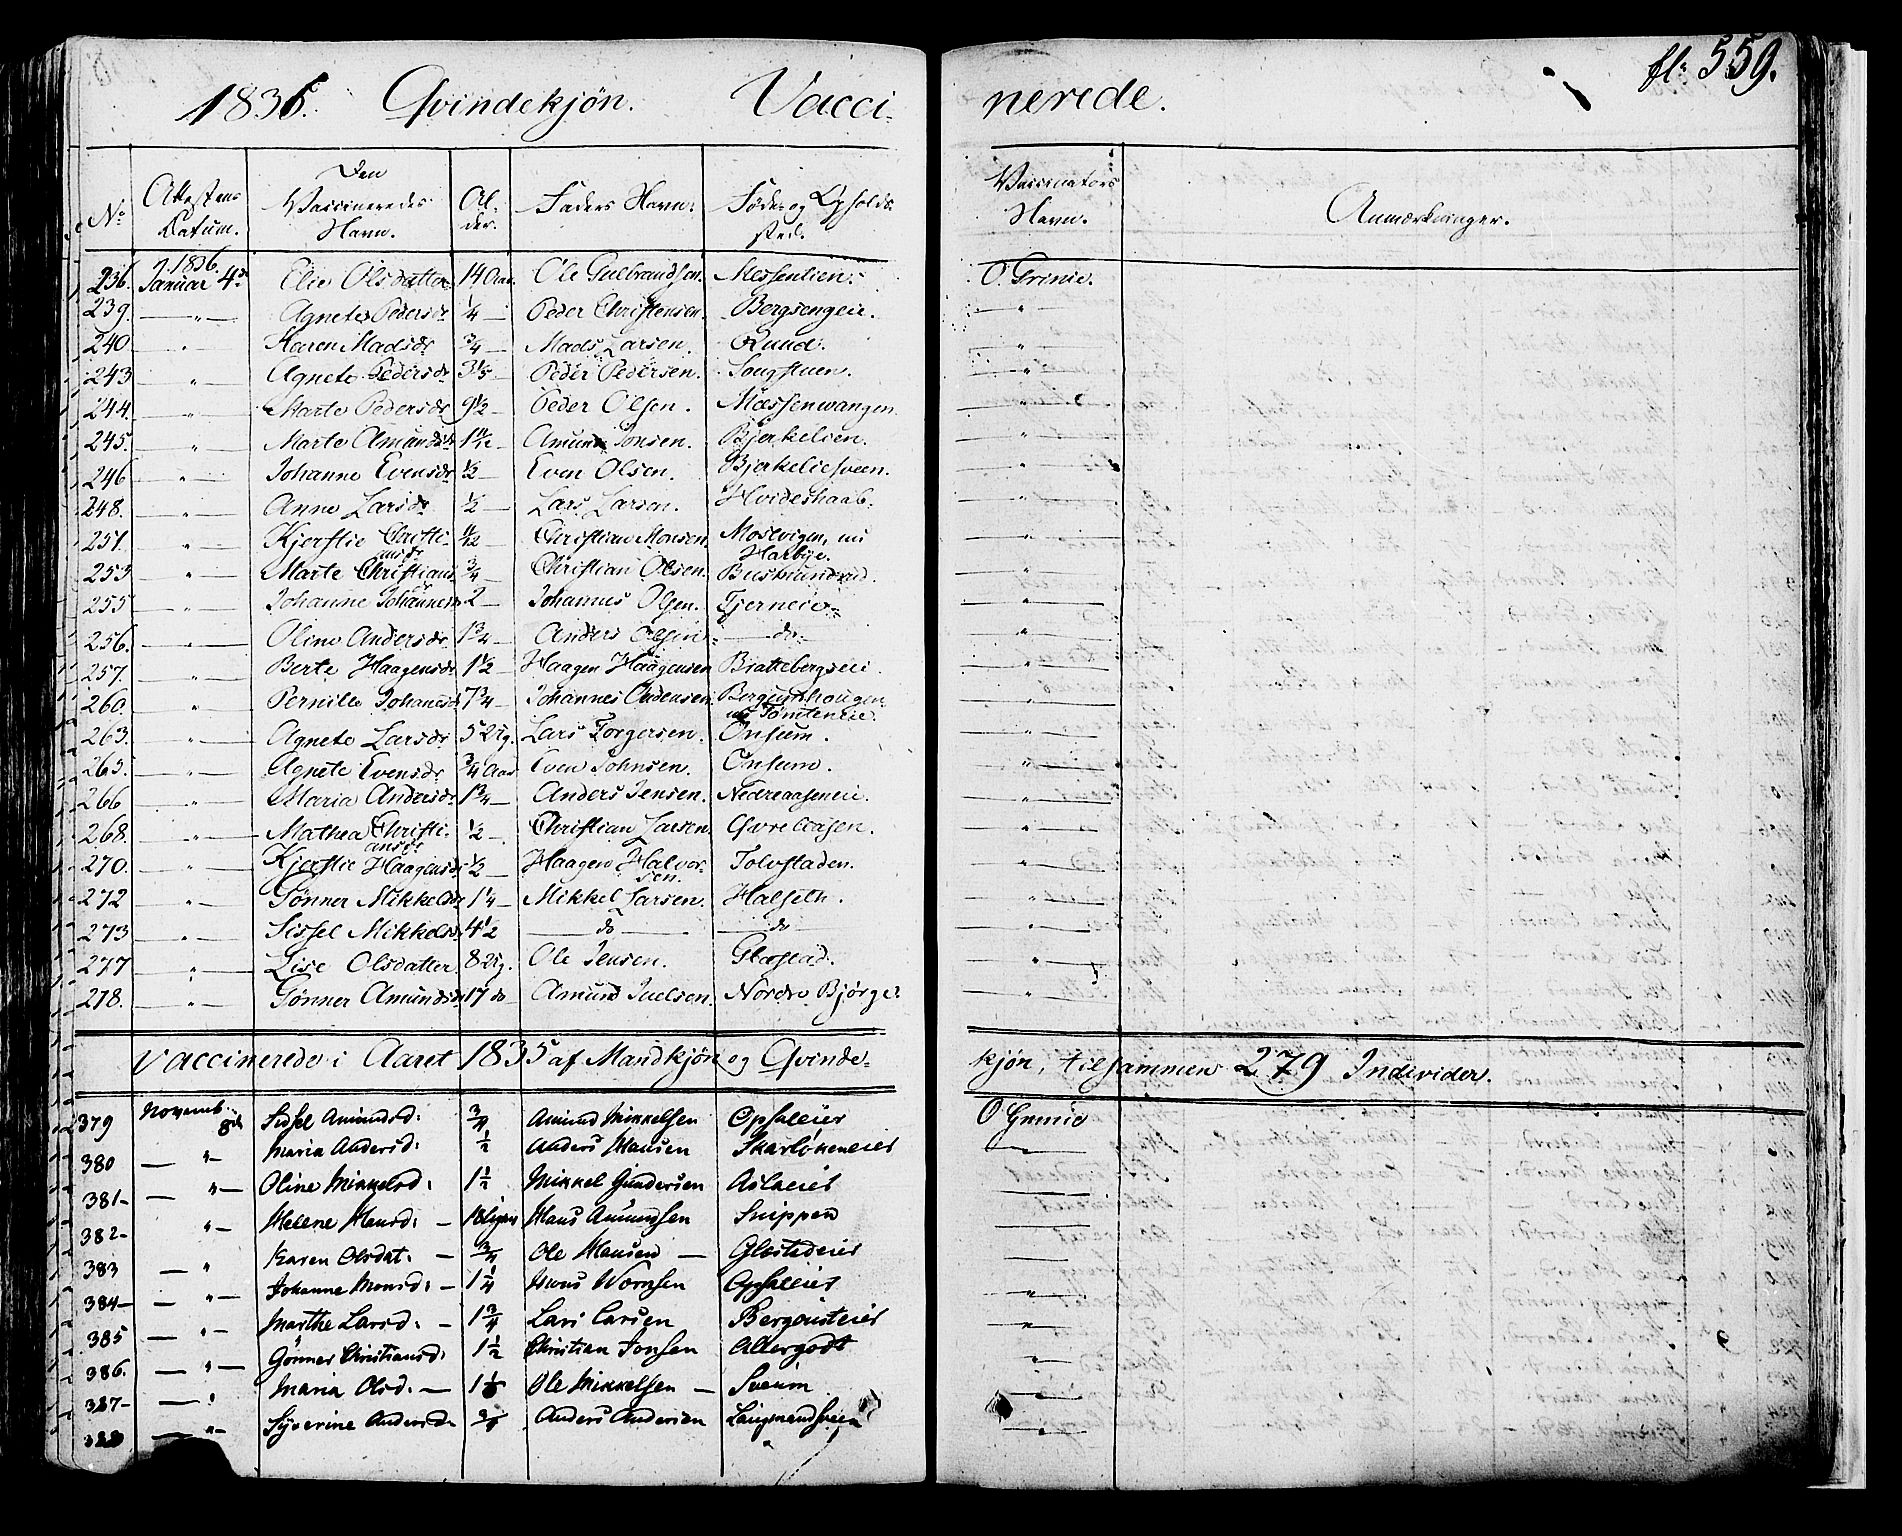 1836. Qvindekjøn. Vaccinerede. fl. 559.
No Attestens Datum. Den Vaccineredes Navn. Alder. Faders Navn. Føde- og Opholdssted. Vaccinators Navn. Anmærkninger.
236. 1836. Januar 4de Elie Olsdatter 14 Aar. Ole Gulbrandsen. Messentien. O. Grinie.
239. — " — Agnete Pedersdr ¼ — Peder Christensen. Bergsengeie. — " —
240. — " — Karen Madsdr ¾ — Mads Larsen. Ruud. — " —
243 — " — Agnete Pedersdr 3 ⅓ — Peder Pedersen. Sougstuen. — " —
244. — " — Marte Pedersdr 9 ½ — Peder Olsen. Mæssenwangen. — " —
245. — " — Marte Amundsdr 1 11/12 — Amund Jonsen. Bjerkelien. — " —
246 — " — Johanne Evensdr ½ — Even Olsen. Bjerkeliesveen. — " —
248. — " — Anne Larsdr ½ — Lars Larsen. Hvideskaab. — " —
251. — " — Kjerstie Christiansdr 11/12 — Christian Monsen. Mostvigen, nu Harbye. — " —
253 — " — Marte Christians ¾ — Christian Olsen. — " —
255 — " — Johanne Johannesdr 2 — Johannes Olsen. Tjerneie — " —
256. — " — Oline Andersdr 1 ¾ — Anders Olsen — do — — " —
257. — " — Berte Haagensdr 1 ½ Haagen Haagensen Brattebergseie — " —
260. — " — Pernille Johannesd 7 ¾ — Johannes Andersen Bergundhougen nu Tømteneie. — " —
263. — " — Agnete Larsdr 5 Ug. Lars Torgersen. Onsum. — " —
265. — " — Agnete Evensdr ¾ Aar Even Johnsen. Onsum. — " —
266 — " — Maria Andersdr 1 ¾ — Anders Jensen. Nedreaaseneie. — " —
268. — " — Mathea Christiansdr ½ — Christian Larsen. Øvreaasen. — " —
270. — " — Kjerstie Haagensdr ½ — Haagen Halvorsen. Tolvstaden. — " —
272 — " — Gønner Mikkelsdr 1 ¼ — Mikkel Larsen. Halseth. — " —
273 — " — Sissel Mikkelsd 4 ½ — do — — do — — " —
277 — " — Lise Olsdatter 8 Ug. Ole Jensen. Glæstad. — " —
278. — " — Gønner Amundsdr 17 do Amund Juelsen. Nordre Bjørge. — " —
Vaccinerede i Aaret 1835 af Mandkjøn og Qvindekjøn, tilsammen 279 Individer.
379 Novemb. 8de Sidsel Amundsd: ¾ Amund Mikkelsen Opsaleiet O Grinie
380 — " — Maria Andersd: ½ Anders Hansen Skarløkeneiet
381- — " — Oline Mikkelsd: 1 ½ Mikkel Gundersen Aslaeiet
382- " — Helene Hansd: — 18 Uger Hans Amundsen Snippen
383 — " Karen Olsdat: — ¾ Ole Hansen — Glestedeiet
384- — " — Johanne Monsd: — 1 ¼ Opsaleiet — " —
385 — " — Marthe Larsd. — 1 ¾ Lars Larsen Bergouisteiet — " —
386. — " — Gønner Christiansd: 1 ½ Christian Jonsen Altergodt — " —
387- — " Maria Olsd. — Ole Mikkelsen — Sveum — " —
388 — " — Syverine Andersd. Anders Andersen — " —